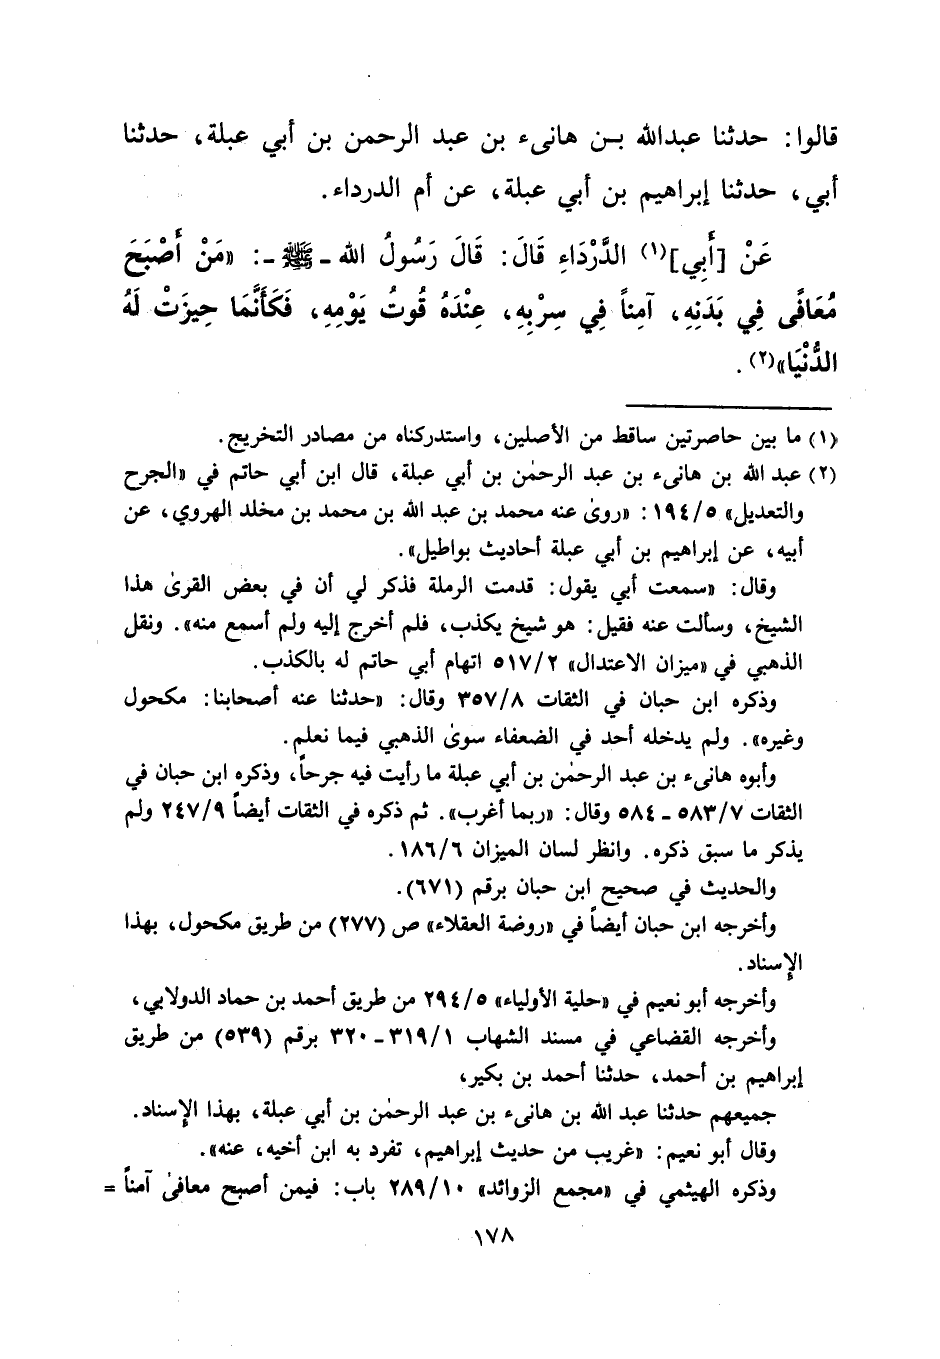 قالوا: حدثنا عبدالله بـن هانىء بن عبد الرحمن بن أبي عبلة، حدثنا
أبي، حدثنا إبراهيم بن أبي عبلة، عن أم الدرداء.
عَنْ [أَبِي](١) الدَّرْدَاءِ قَالَ: قَالَ رَسُولُ الله ـ ﷺ ـ: «مَنْ أَصْبَحَ
مُعَافًى فِي بَدَنِهِ، آمِناً فِي سِرْبِهِ، عِنْدَهُ قُوتُ يَوْمِهِ، فَكَأَنَّمَا حِيزَتْ لَهُ
الدُّنْيَا»(٢).
(١) ما بين حاصرتين ساقط من الأصلين، واستدركناه من مصادر التخريج.
(٢) عبد الله بن هانىء بن عبد الرحمٰن بن أبي عبلة، قال ابن أبي حاتم في «الجرح
والتعديل» ١٩٤/٥: «روىٰ عنه محمد بن عبد الله بن محمد بن مخلد الهروي، عن
أبيه، عن إبراهيم بن أبي عبلة أحاديث بواطيل».
وقال: «سمعت أبي يقول: قدمت الرملة فذكر لي أن في بعض القرىٰ هذا
الشيخ، وسألت عنه فقيل: هو شيخ يكذب، فلم أخرج إليه ولم أسمع منه». ونقل
الذهبي في «ميزان الاعتدال» ٥١٧/٢ اتهام أبي حاتم له بالكذب.
وذكره ابن حبان في الثقات ٣٥٧/٨ وقال: «حدثنا عنه أصحابنا: مكحول
وغيره». ولم يدخله أحد في الضعفاء سوىٰ الذهبي فيما نعلم.
وأبوه هانىء بن عبد الرحمٰن بن أبي عبلة ما رأيت فيه جرحاً، وذكره ابن حبان في
الثقات ٥٨٣/٧ ـ ٥٨٤ وقال: «ربما أغرب». ثم ذكره في الثقات أيضاً ٢٤٧/٩ ولم
يذكر ما سبق ذكره. وانظر لسان الميزان ١٨٦/٦.
والحديث في صحيح ابن حبان برقم (٦٧١).
وأخرجه ابن حبان أيضاً في «روضة العقلاء» ص (٢٧٧) من طريق مكحول، بهذا
الإسناد.
وأخرجه أبو نعيم في «حلية الأولياء» ٢٩٤/٥ من طريق أحمد بن حماد الدولابي،
وأخرجه القضاعي في مسند الشهاب ٣١٩/١ ـ ٣٢٠ برقم (٥٣٩) من طريق
إبراهيم بن أحمد، حدثنا أحمد بن بكير،
جميعهم حدثنا عبد الله بن هانىء بن عبد الرحمٰن بن أبي عبلة، بهذا الإسناد.
وقال أبو نعيم: «غريب من حديث إبراهيم، تفرد به ابن أخيه، عنه».
وذكره الهيثمي في «مجمع الزوائد» ٢٨٩/١٠ باب: فيمن أصبح معافىٰ آمناً =
١٧٨